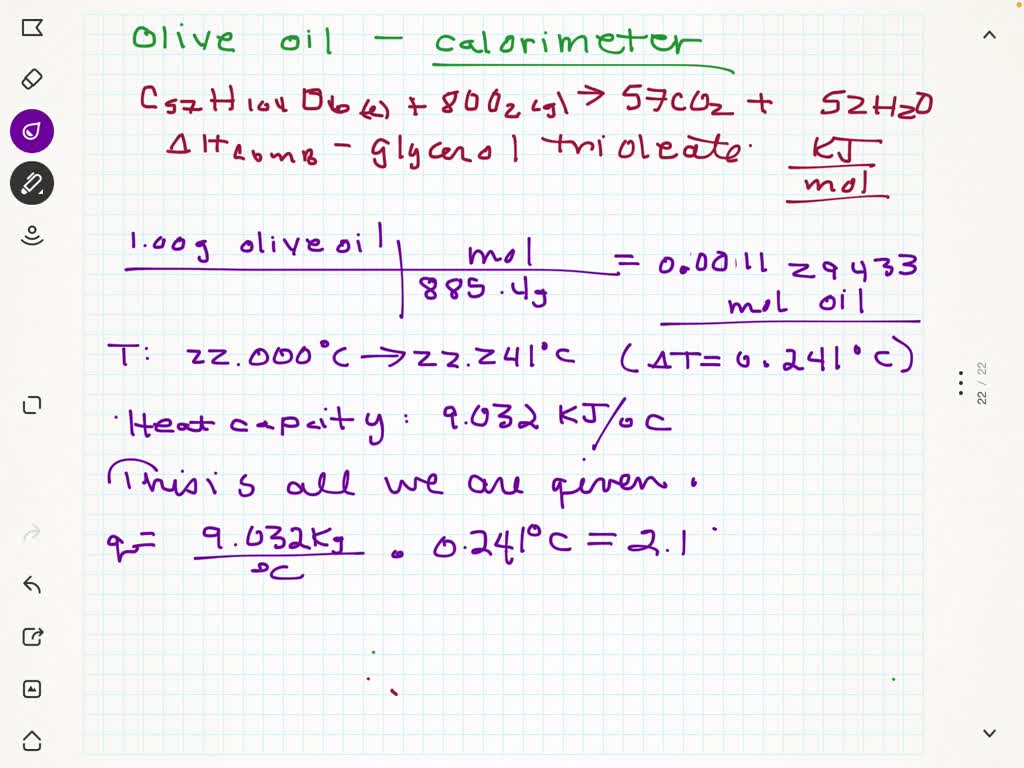 Olive oil - calorimeter
C57H104O6(l) + 80O2(g) → 57CO2 + 52H2O
ΔHcomB - glycerol trioleate. KJ/mol
1.00g olive oil | mol = 0.0011 29433
885.4g mol oil
T: 22.000°C → 22.241°C (ΔT= 0.241°C)
Heat capaity: 9.032 KJ/°C
This is all we are given.
q= 9.032KJ/°C • 0.241°C = 2.1
22 / 22